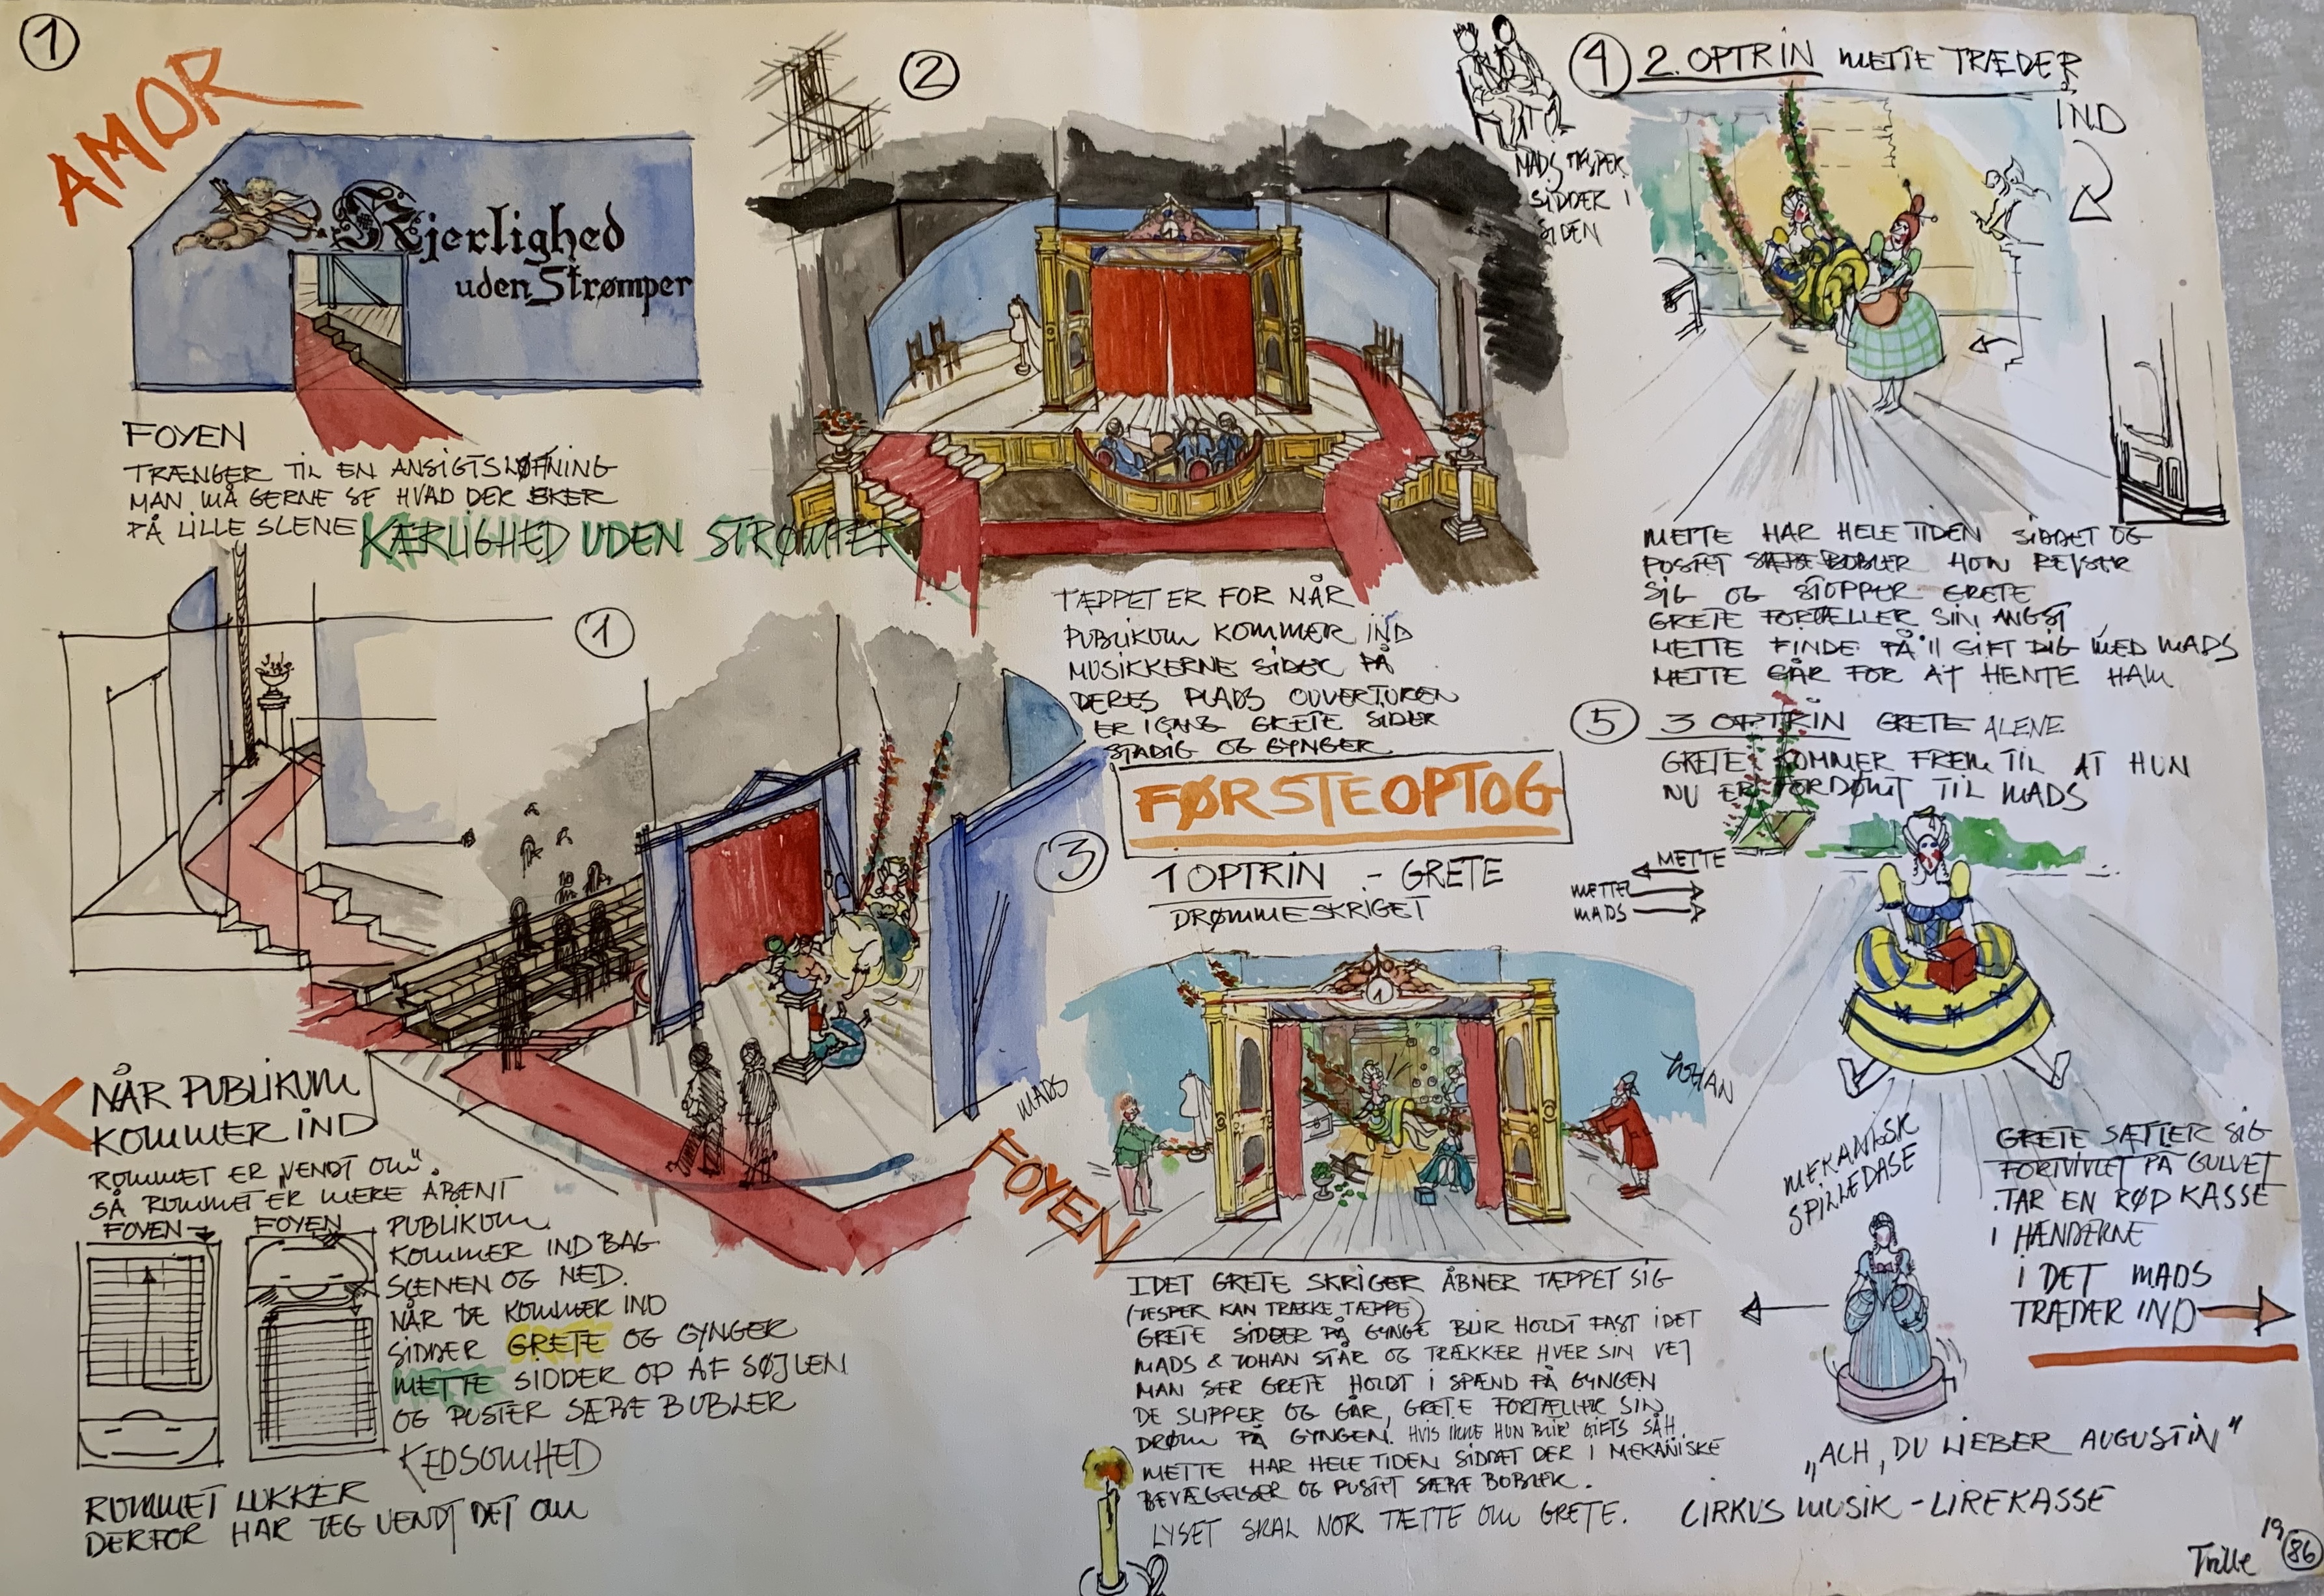 1
AMOR
Kjerlighed
uden Strømper
FOYEN
TRÆNGER TIL EN ANSIGTSLØFTNING
MAN MÅ GERNE SE HVAD DER SKER
PÅ LILLE SCENE KÆRLIGHED UDEN STRØMPER
1
NÅR PUBLIKUM
KOMMER IND
RUMMET ER „VENDT OM"
SÅ RUMMET ER MERE ÅBENT
FOYEN
FOYEN
PUBLIKUM
KOMMER IND BAG
SCENEN OG NED.
NÅR DE KOMMER IND
SIDDER GRETE OG GYNGER
METTE SIDDER OP AF SØJLEN
OG PUSTER SÆBE BUBLER
KEDSOMHED
RUMMET LUKKER
DERFOR HAR JEG VENDT DET OM
FOYEN
2
TÆPPET ER FOR NÅR
PUBLIKUM KOMMER IND
MUSIKKERNE SIDER PÅ
DERES PLADS OUVERTUREN
ER IGANG GRETE SIDER
STADIG OG GYNGER
MADS
SIDDER I
SIDEN
FØRSTEOPTOG
3
1 OPTRIN .- GRETE
DRØMMESKRIGET
MADS
JOHAN
IDET GRETE SKRIGER ÅBNER TÆPPET SIG
(JESPER KAN TRÆKKE TÆPPE)
GRETE SIDDER PÅ GYNGE BLIR HOLDT FAST IDET
MADS & JOHAN STÅR OG TRÆKKER HVER SIN VEJ
MAN SER GRETE HOLDT I SPÆND PÅ GYNGEN
DE SLIPPER OG GÅR, GRETE FORTÆLLER SIN
DRØM PÅ GYNGEN. HVIS IKKE HUN BLIR GIFTS SÅH
METTE HAR HELE TIDEN SIDDET DER I MEKANISKE
BEVÆGELSER OG PUSTET SÆBE BOBLER.
LYSET SKAL NOK TÆTTE OM GRETE.
4 2. OPTRIN METTE TRÆDER
IND
METTE HAR HELE TIDEN SIDDET OG
PUSTET SÆBE BOBLER HUN REJSER
SIG OG STOPPER GRETE
GRETE FORTÆLLER SIN ANGST
METTE FINDE PÅ "GIFT DIG MED MADS
METTE GÅR FOR AT HENTE HAM
5 3 OPTRIN GRETE ALENE
GRETE KOMMER FREM TIL AT HUN
NU ER FORDØMT TIL MADS
METTE
METTE
MADS
MEKANISK
SPILLEDASE
GRETE SÆTTER SIG
FORTVIVLET PÅ GULVET
TAR EN RØD KASSE
I HÆNDERNE
I DET MADS
TRÆDER IND
„ACH, DU LIEBER AUGUSTIN"
CIRKUS MUSIK - LIREKASSE
Trille 19 86